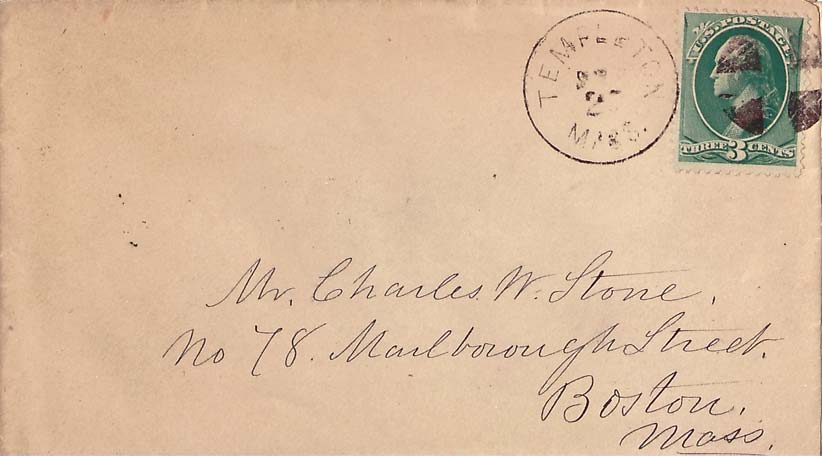 TEMPLETON
MASS.
U.S. POSTAGE
THREE 3 CENTS
Mr. Charles W. Stone,
No 78. Marlborough Street.
Boston,
Mass.